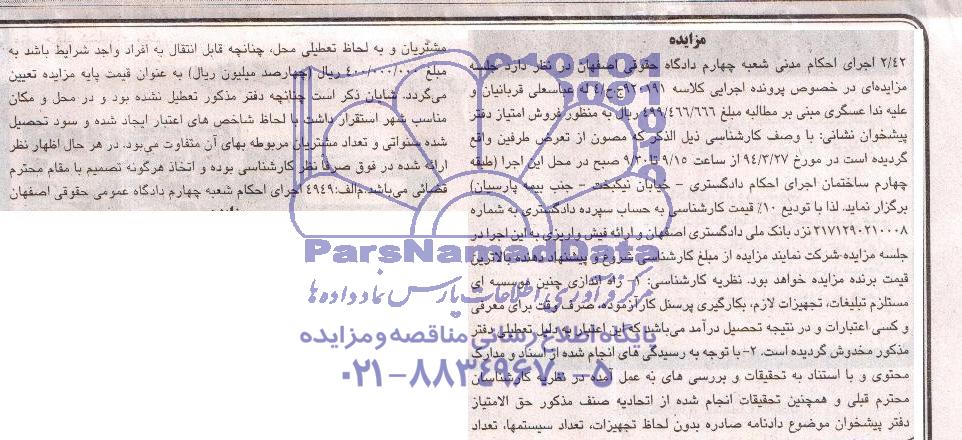 مزایده
۲/۴۲ اجرای احکام مدنی شعبه چهارم دادگاه حقوقی اصفهان در نظر دارد جلسه
مزایده‌ای در خصوص پرونده اجرایی کلاسه له عباسعلی قربانیان و
علیه ندا عسگری مبنی بر مطالبه مبلغ ۴۹۹/۴۶۶/۶۶۶ ریال به منظور فروش امتیاز دفتر
پیشخوان نشانی: با وصف کارشناسی ذیل الذکر که مصون از تعرض طرفین واقع
گردیده است در مورخ ۹۴/۳/۲۷ از ساعت ۹/۱۵ تا ۹/۳۰ صبح در محل این اجرا (طبقه
چهارم ساختمان اجرای احکام دادگستری – خیابان نیکبخت – جنب بیمه پارسیان)
برگزار نماید. لذا با تودیع ۱۰٪ قیمت کارشناسی به حساب سپرده دادگستری به شماره
۲۱۷۱۲۹۰۲۱۰۰۰۸ نزد بانک ملی دادگستری اصفهان و ارائه فیش واریزی به این اجرا در
جلسه مزایده شرکت نمایند مزایده از مبلغ کارشناسی شروع و پیشنهاد دهنده بالاترین
قیمت برنده مزایده خواهد بود. نظریه کارشناسی: ۱- راه اندازی چنین موسسه ای
مستلزم تبلیغات، تجهیزات لازم، بکارگیری پرسنل کارآزموده، صرف وقت برای معرفی
و کسی اعتبارات و در نتیجه تحصیل درآمد می‌باشد که این اعتبار به دلیل تعطیلی دفتر
مذکور مخدوش گردیده است. ۲- با توجه به رسیدگی های انجام شده از اسناد و مدارک
محتوی و با استناد به تحقیقات و بررسی های به عمل آمده در نظریه کارشناسان
محترم قبلی و همچنین تحقیقات انجام شده از اتحادیه صنف مذکور حق الامتیاز
دفتر پیشخوان موضوع دادنامه صادره بدون لحاظ تجهیزات، تعداد سیستمها، تعداد
مشتریان و به لحاظ تعطیلی محل، چنانچه قابل انتقال به افراد واجد شرایط باشد به
مبلغ ۴۰۰/۰۰۰/۰۰۰ ریال (چهارصد میلیون ریال) به عنوان قیمت پایه مزایده تعیین
می‌گردد. شایان ذکر است چنانچه دفتر مذکور تعطیل نشده بود و در محل و مکان
مناسب شهر استقرار داشت با لحاظ شاخص های اعتبار ایجاد شده و سود تحصیل
شده سنواتی و تعداد مشتریان مربوطه بهای آن متفاوت می‌بود. در هر حال اظهار نظر
ارائه شده در فوق صرفا نظر کارشناسی بوده و اتخاذ هرگونه تصمیم با مقام محترم
قضائی می‌باشد م‌الف:۴۹۴۹ اجرای احکام شعبه چهارم دادگاه عمومی حقوقی اصفهان
ParsNamadData
گردآوری اطلاعات پارس نماد داده ها
پایگاه اطلاع رسانی مناقصه و مزایده
۰۲۱-۸۸۳۴۹۶۷۰-۵